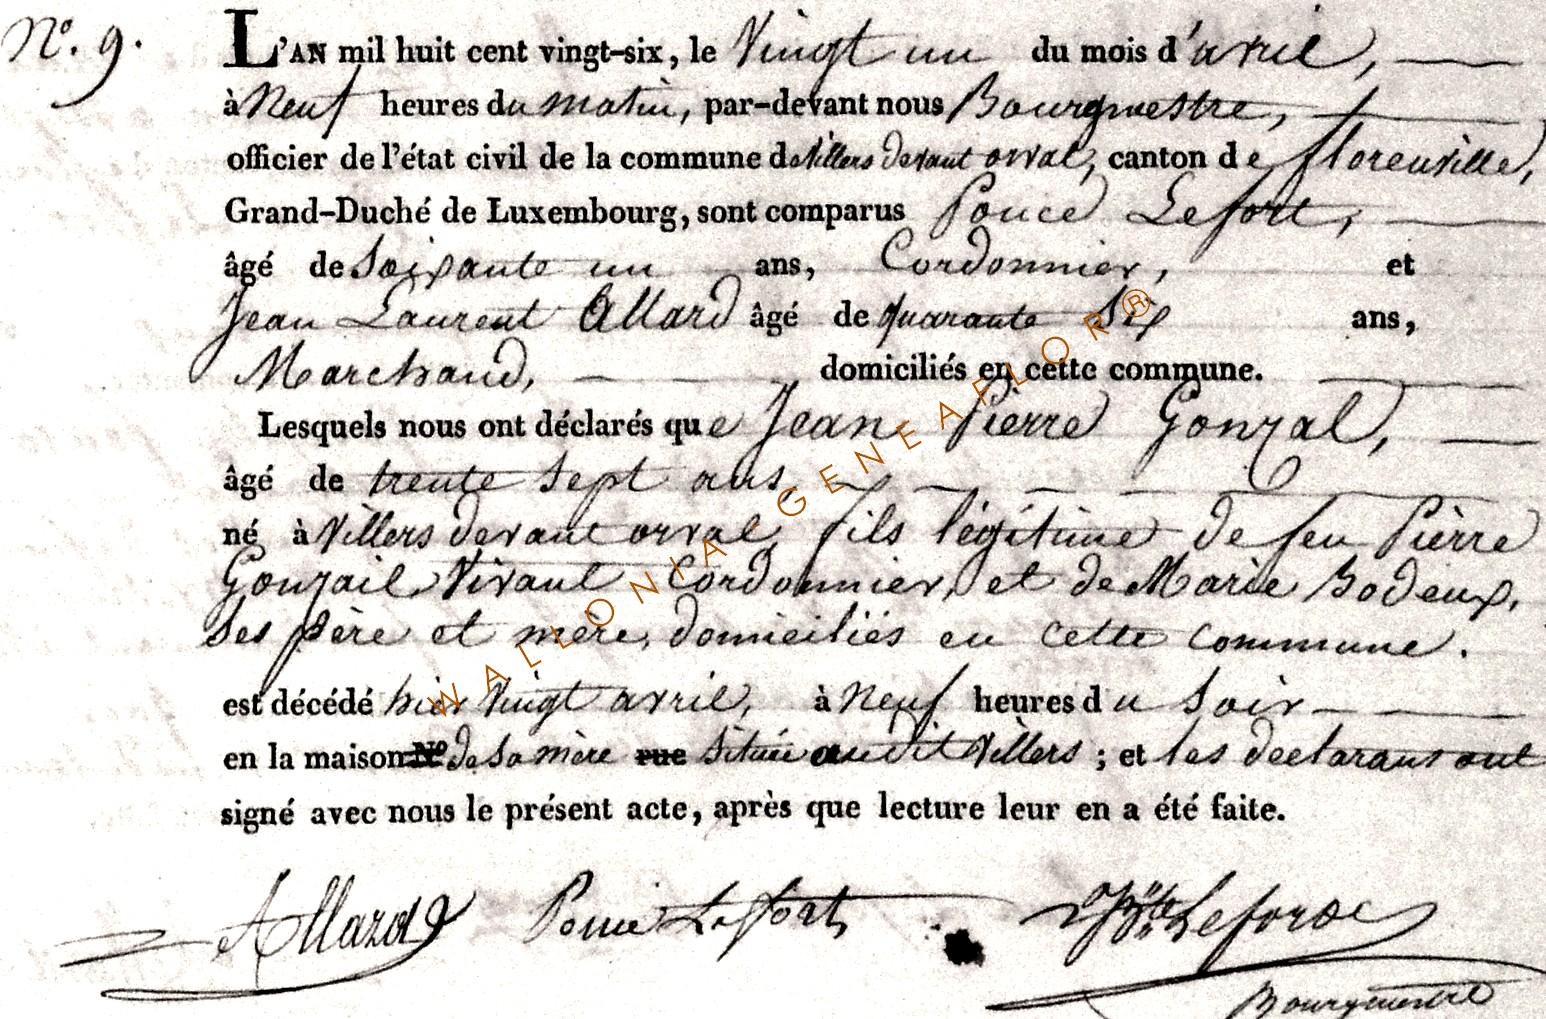 N.º 9.
L'AN mil huit cent vingt-six, le Vingt un du mois d'avril,
à Neuf heures du matin, par-devant nous Bourgmestre,
officier de l'état civil de la commune de Villers devant orval, canton de florenville,
Grand-Duché de Luxembourg, sont comparus Ponce Lefort,
âgé de Soixante un ans, Cordonnier, et
Jean Laurent Allard âgé de quarante Six ans,
Marchand, domiciliés en cette commune.
Lesquels nous ont déclarés que Jean Pierre Gonzal,
âgé de trente sept ans,
né à Villers devant orval, fils légitime de feu Pierre
Gonzail Vivant Cordonnier, et de Marie Bodeux,
ses père et mère, domiciliés en cette commune.
est décédé hier Vingt avril, à Neuf heures du Soir
en la maison No de sa mère rue située audit Villers ; et les déclarans ont
signé avec nous le présent acte, après que lecture leur en a été faite.
Allard Ponce Lefort
Bourgmestre
WALLONIA - GENEAFLOR®